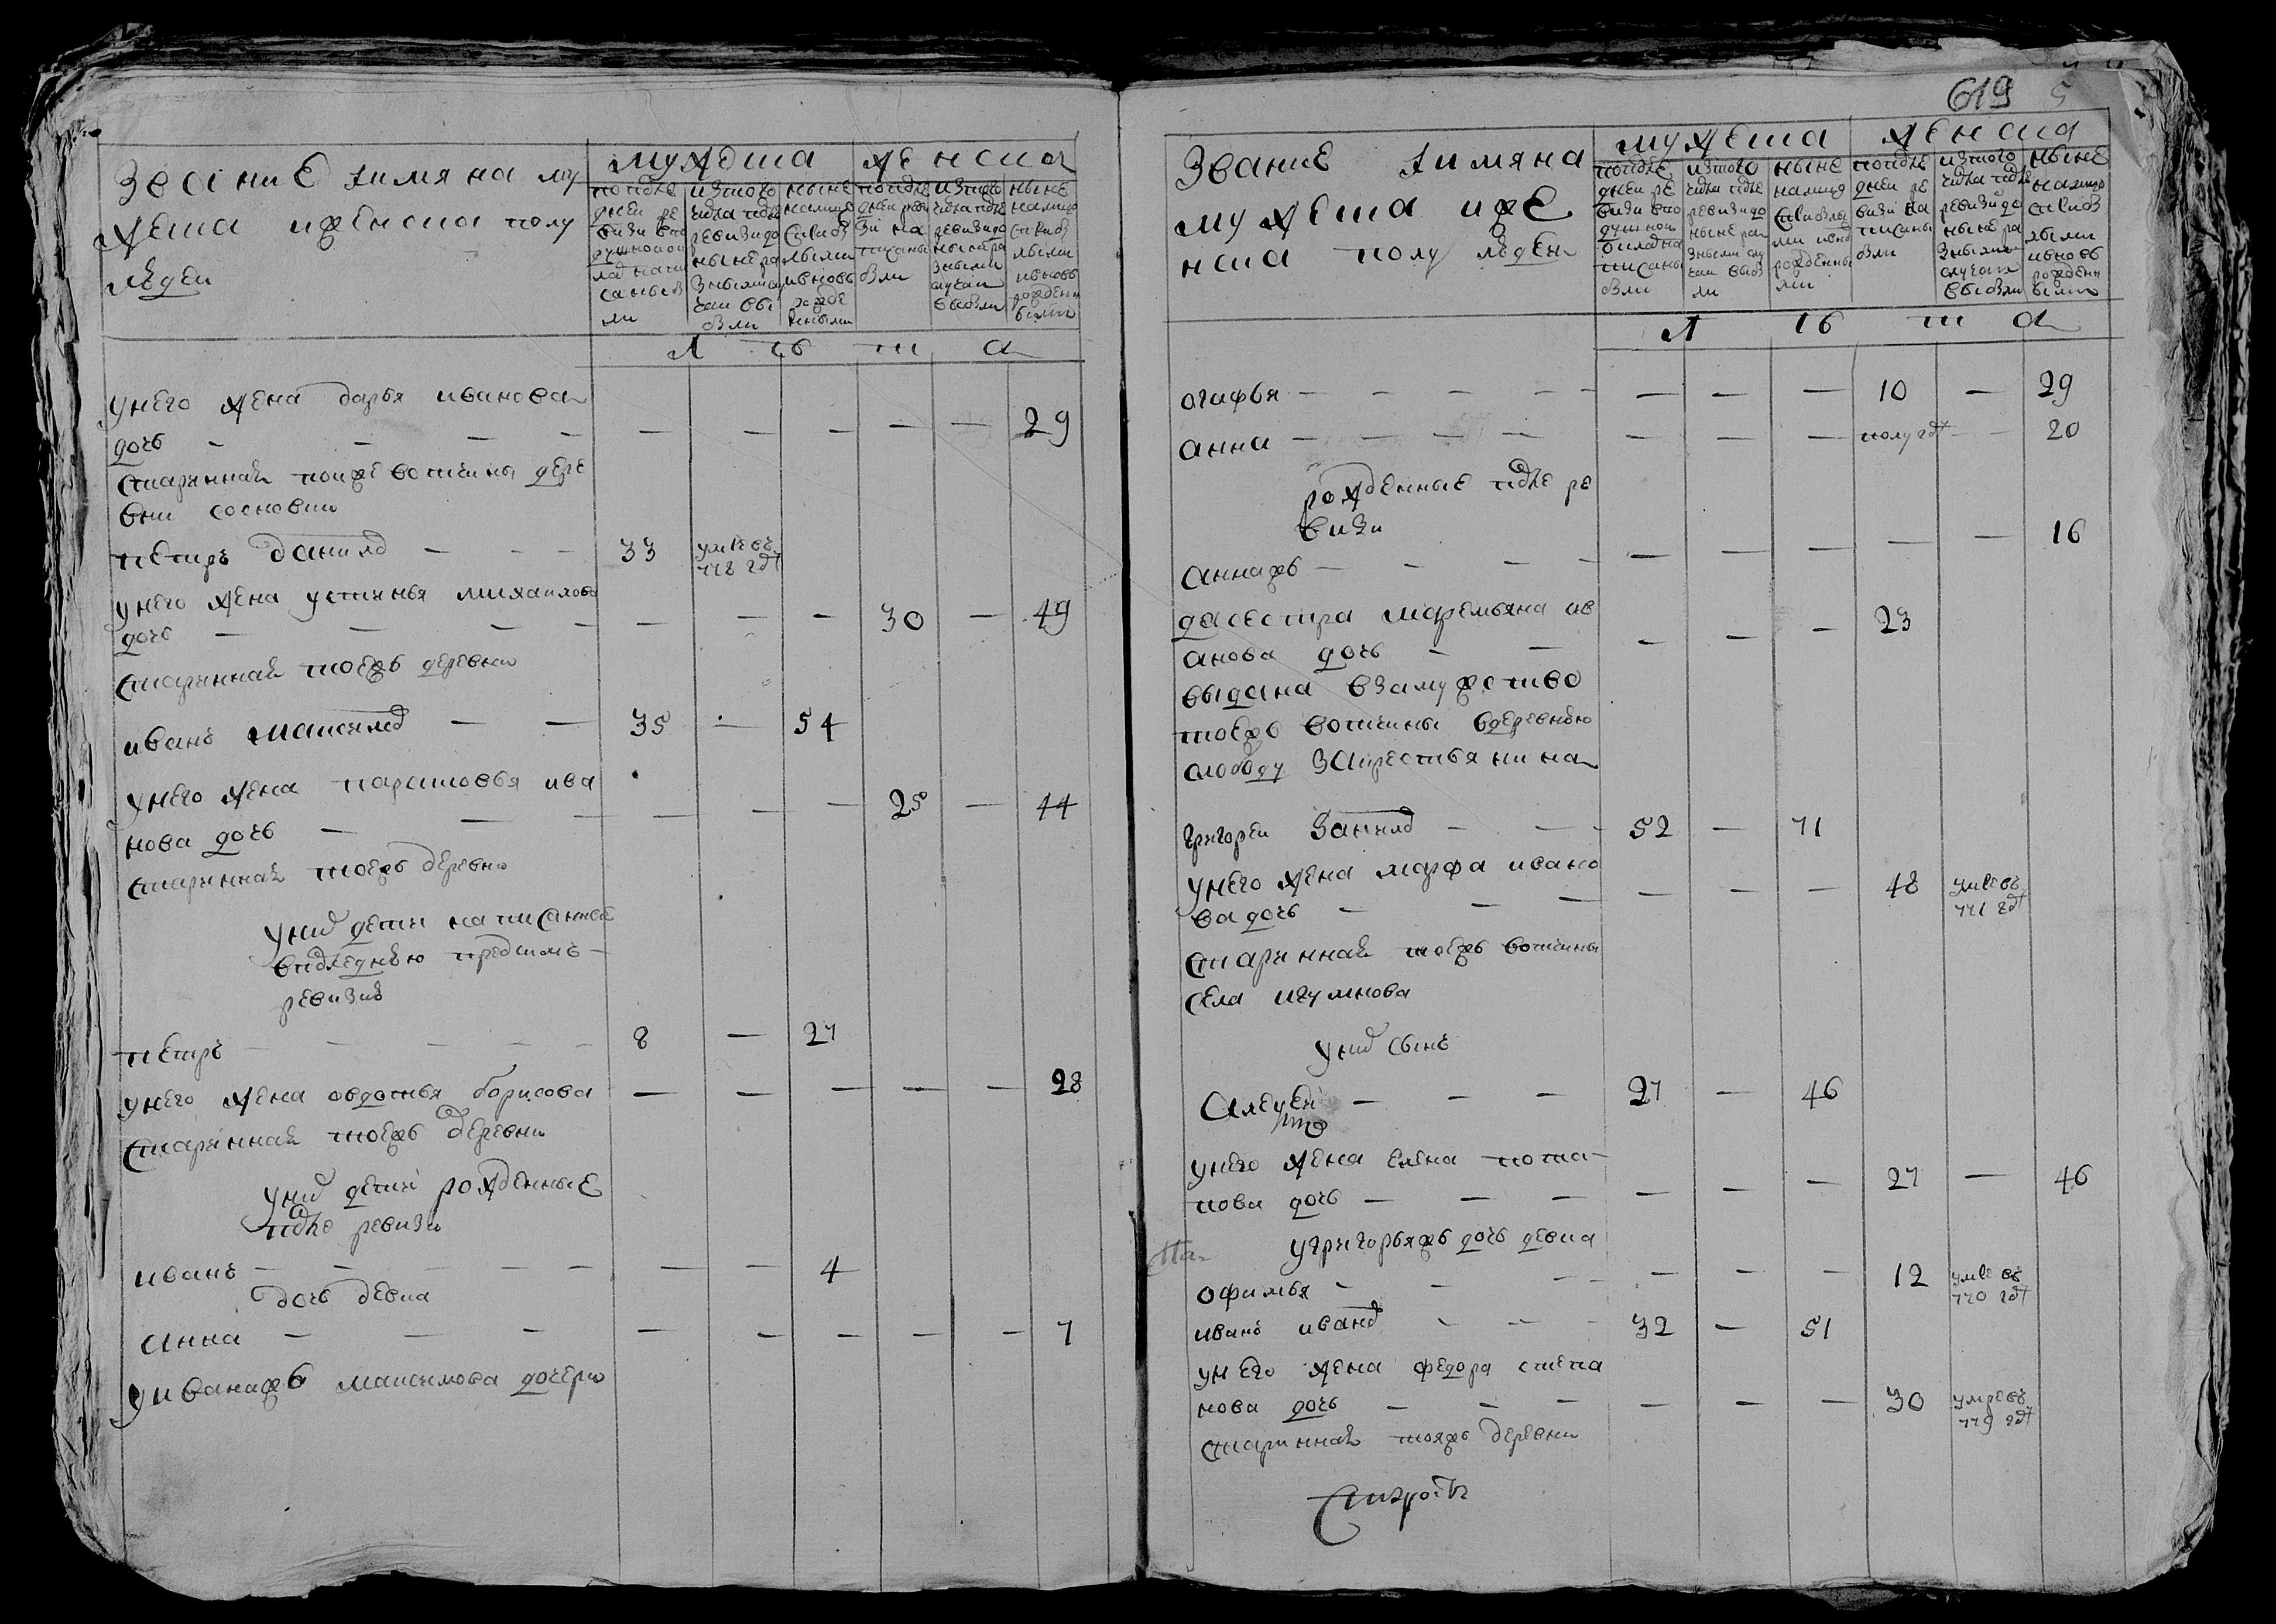 Звание имяна му
жеска иженска полу
людеи
мужеска
женска
попослѣ
днеи ре
визи впо
душнои ок
лад напи
саныхъ
ли
исного
числа послѣ
ревизи до
ныне ра
зными слу
чаи вы
были
ныне
налицо
сприбы
лыми
ивновь
рожде
нными
попослѣ
днеи реви
зи на
писаны
были
исного
числа послѣ
ревизи до
ныне ра
зными
случаи
выбыли
ныне
налицо
сприбы
лыми
ивновь
рожденн
ыми
л ѣ т а
унего жена дарья иванова
дочь — — — — — — — — — 29
старинная тоиже вотчины дере
вни сосновки
петръ данилов — — — 33 умре въ
778 году
унего жена устинья михаилова
дочь — — — — — — — 30 — 49
старинная тоежъ деревни
иванъ максимов — — 35 — 54
унего жена парасковья ива
нова дочь — — — — — — 25 — 44
старинная тоежъ деревни
уних дети написанные
впоследнею предсимъ
ревизию
петръ — — — — — 8 — 27
унего жена овдотья борисова — — — — — 28
старинная тоежъ деревни
уних дети рожденные
после ревизи
иванъ — — — — — — — 4
дочь девка
анна — — — — — — — — 7
уиванажъ максимова дочери
619
5
Звание имяна
мужеска иже
нска полу людеи
мужеска
женска
попослѣ
днеи ре
визи впо
душнои
оклад на
писаны
были
исного
числа послѣ
ревизи до
ныне ра
зными слу
чаи выбы
ли
ныне
налицо
сприбылы
ми ивновь
рожденны
ми
попослѣ
днеи ре
визи на
писаны
были
исного
числа послѣ
ревизи до
ныне ра
зными
случаи
выбыли
ныне
налицо
сприб
лыми
ивновь
рожденн
ыми
л ѣ т а
огафья — — — — — — — — 10 — 29
анна — — — — — — — полугоду — 20
рожденные после ре
визи
аннажъ — — — — — — — — — 16
даосестра маремьяна ив
анова дочь — — — — — 23
выдана взамужство
тоежъ вотчины вдеревню
слободу закрестьянина
григореи занинов — — — 52 — 71
унего жена марфа ивано
ва дочь — — — — — — 48 умре въ
771 году
старинная тоежъ вотчины
села игумнова
уних сынъ
Алексеи — — — 27 — 46
унего жена елена пота
пова дочь — — — — — — 27 — 46
угригорьяжъ дочь девка
офимья — — — — — — 12 умре въ
770 году
иванъ иванов — — — 32 — 51
унего жена федора степа
нова дочь — — — — — — 30 умре въ
779 году
старинная тояжъ деревни